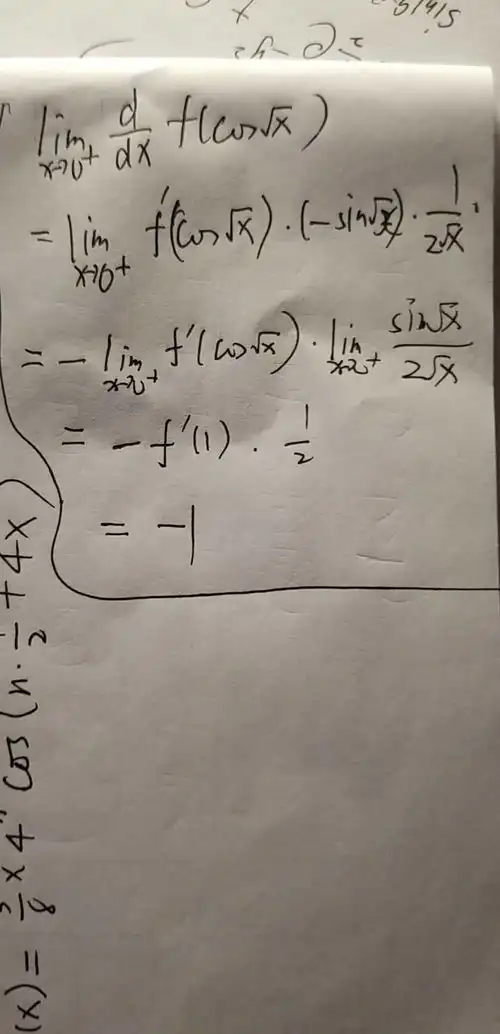 lim x→0+ d/dx f(cos√x)
= lim x→0+ f'(cos√x) · (−sin√x) · 1/2√x .
= − lim x→0+ f'(cos√x) · lim x→0+ sin√x/2√x
= − f'(1) · 1/2
= −1
(x) = 3/8 × 4ⁿ cos(n · π/2 + 4x)